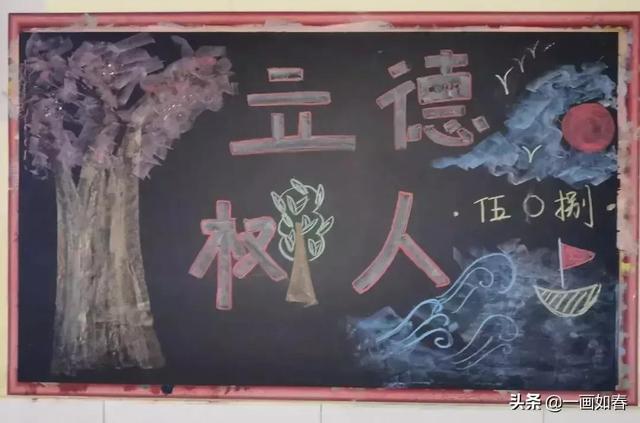 立德
树人
·伍〇捌·
头条 @一画如春